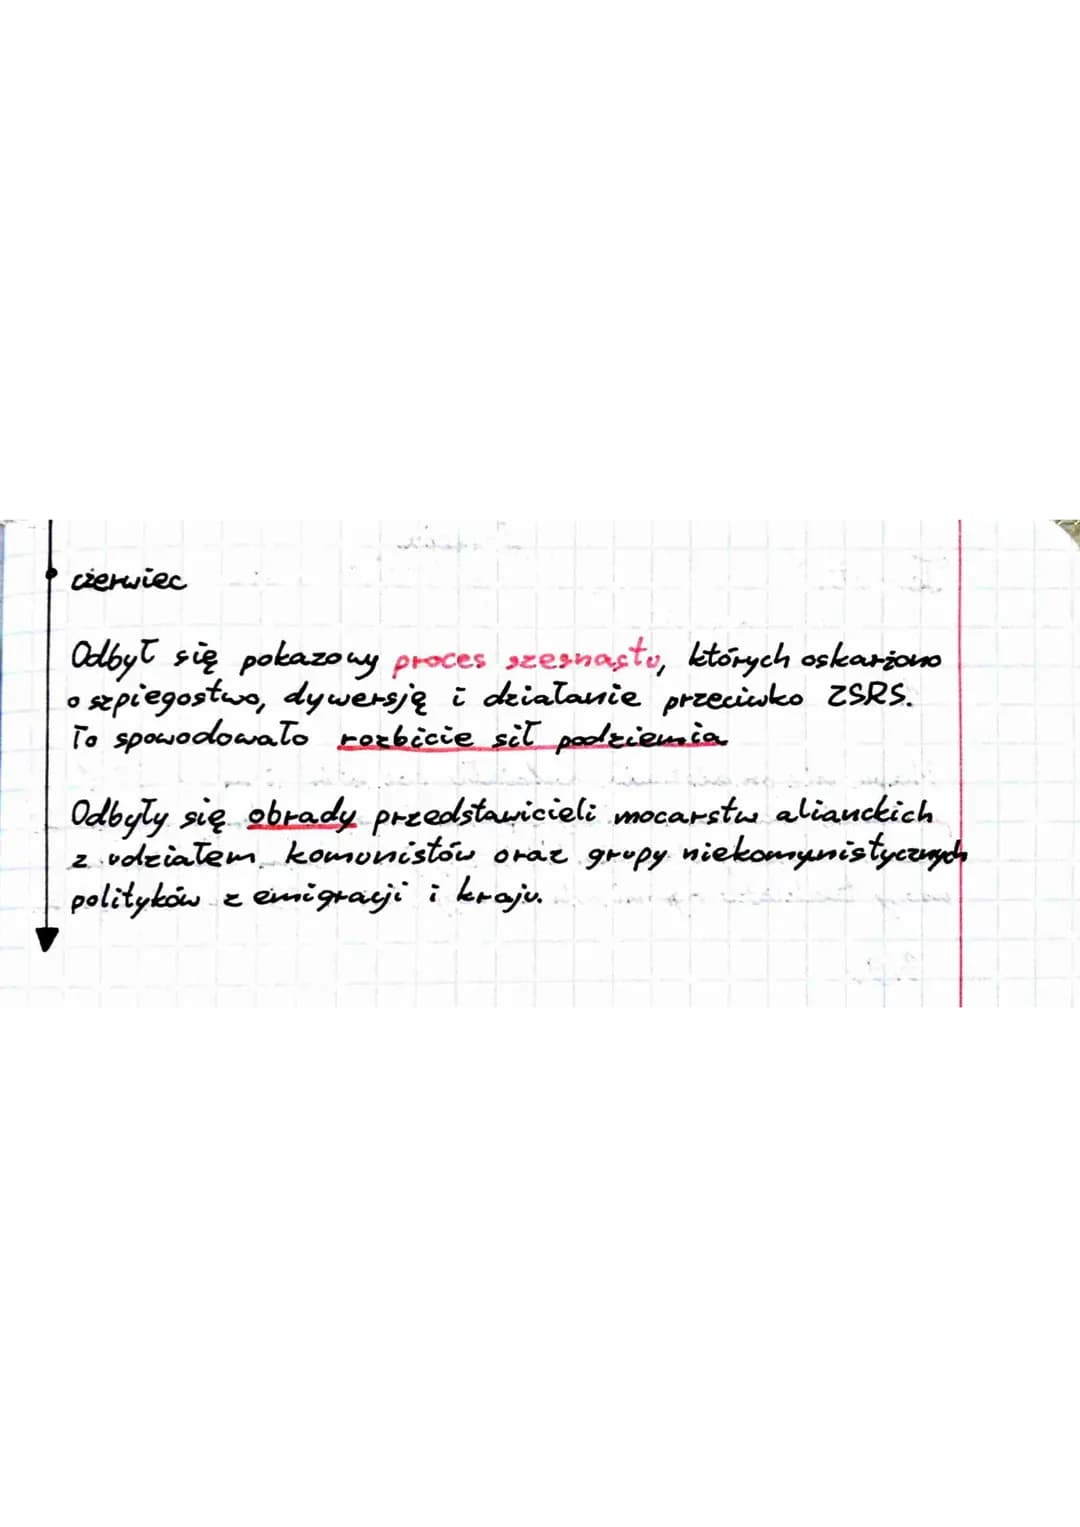 czerwiec
Odbył się pokazowy proces szesnastu, których oskarżono
o szpiegostwo, dywersję i działanie przeciwko ZSRS.
To spowodowało rozbicie sił podziemia
Odbyły się obrady przedstawicieli mocarstw alianckich
z udziałem komunistów oraz grupy niekomunistycznych
polityków z emigracji i kraju.